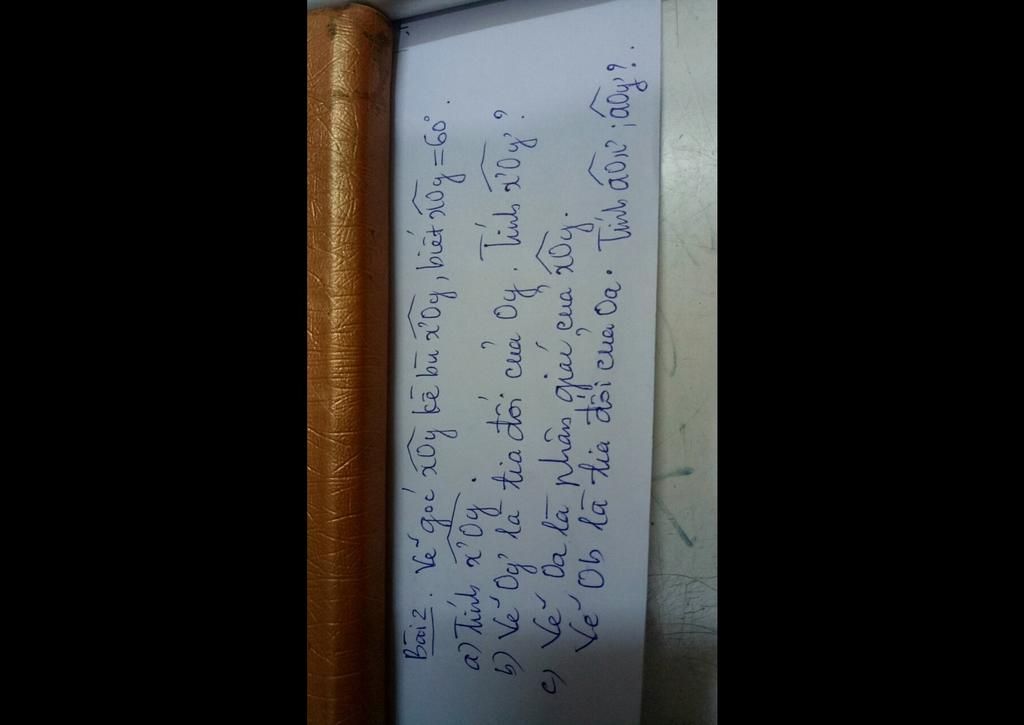 Bài 2. Vẽ góc xOy kề bù x'Oy, biết xOy = 60°.
a) Tính x'Oy.
b) Vẽ Oy' là tia đối của Oy. Tính x'Oy'?
c) Vẽ Oa là phân giác của xOy.
Vẽ Ob là tia đối của Oa. Tính aOx'; aOy'?.